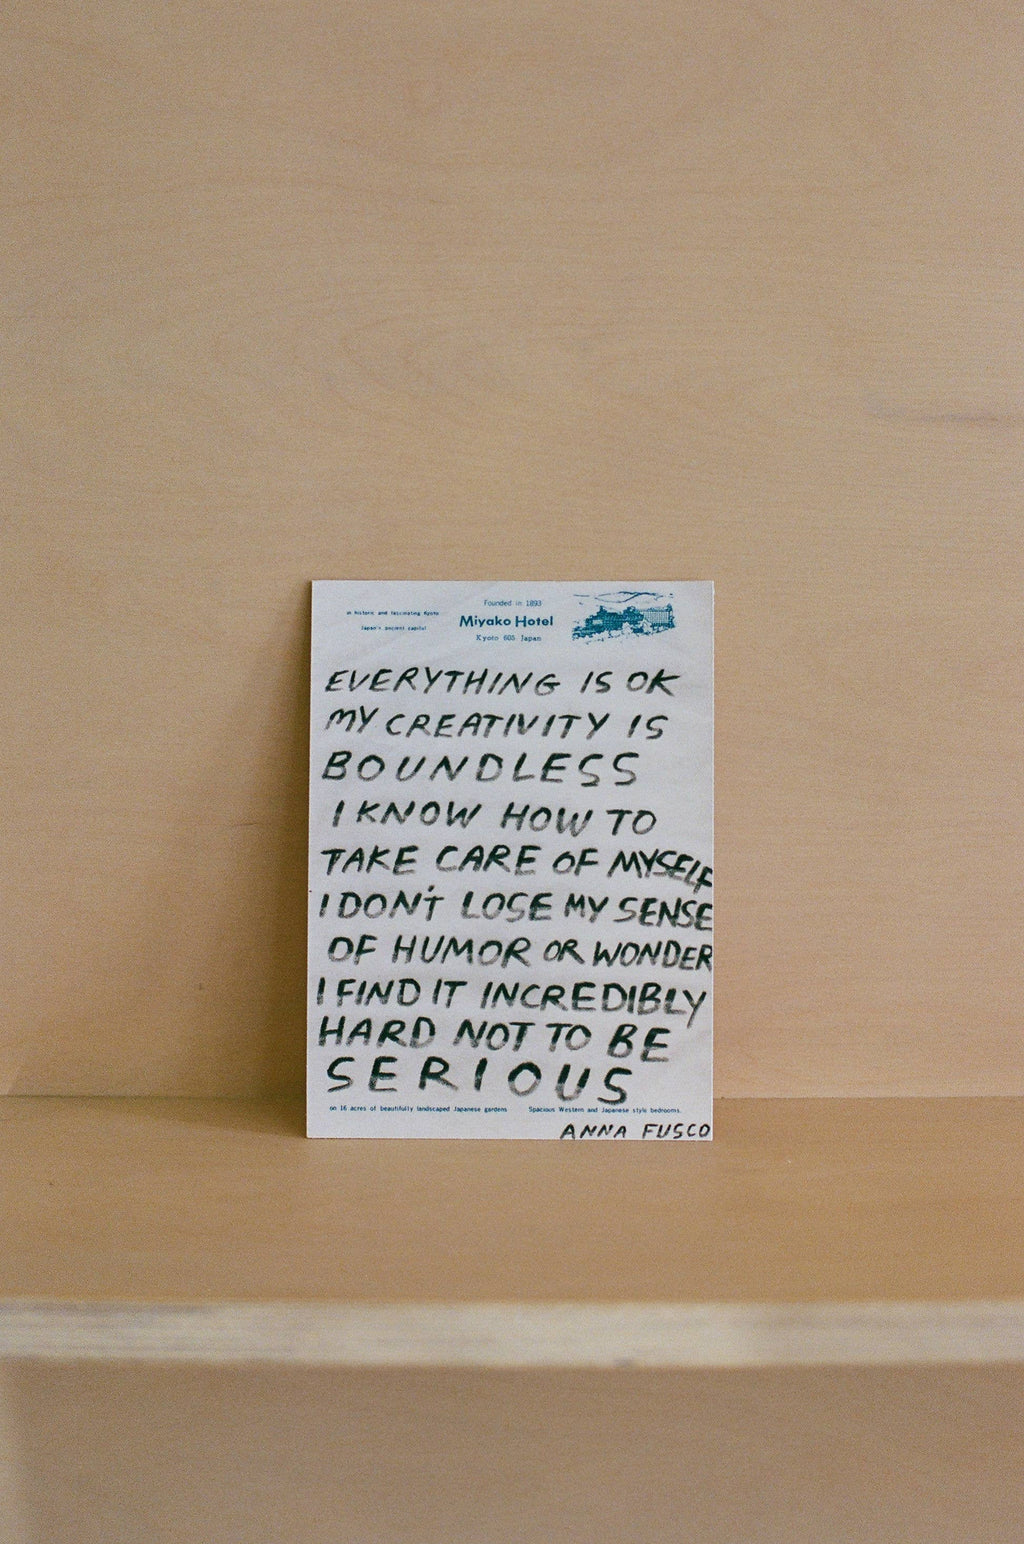 in historic and fascinating Kyoto
Japan's ancient capital
Founded in 1893
Miyako Hotel
Kyoto 605 Japan
EVERYTHING IS OK
MY CREATIVITY IS
BOUNDLESS
I KNOW HOW TO
TAKE CARE OF MYSELF
I DON'T LOSE MY SENSE
OF HUMOR OR WONDER
I FIND IT INCREDIBLY
HARD NOT TO BE
SERIOUS
on 16 acres of beautifully landscaped Japanese gardens
Spacious Western and Japanese style bedrooms.
ANNA FUSCO